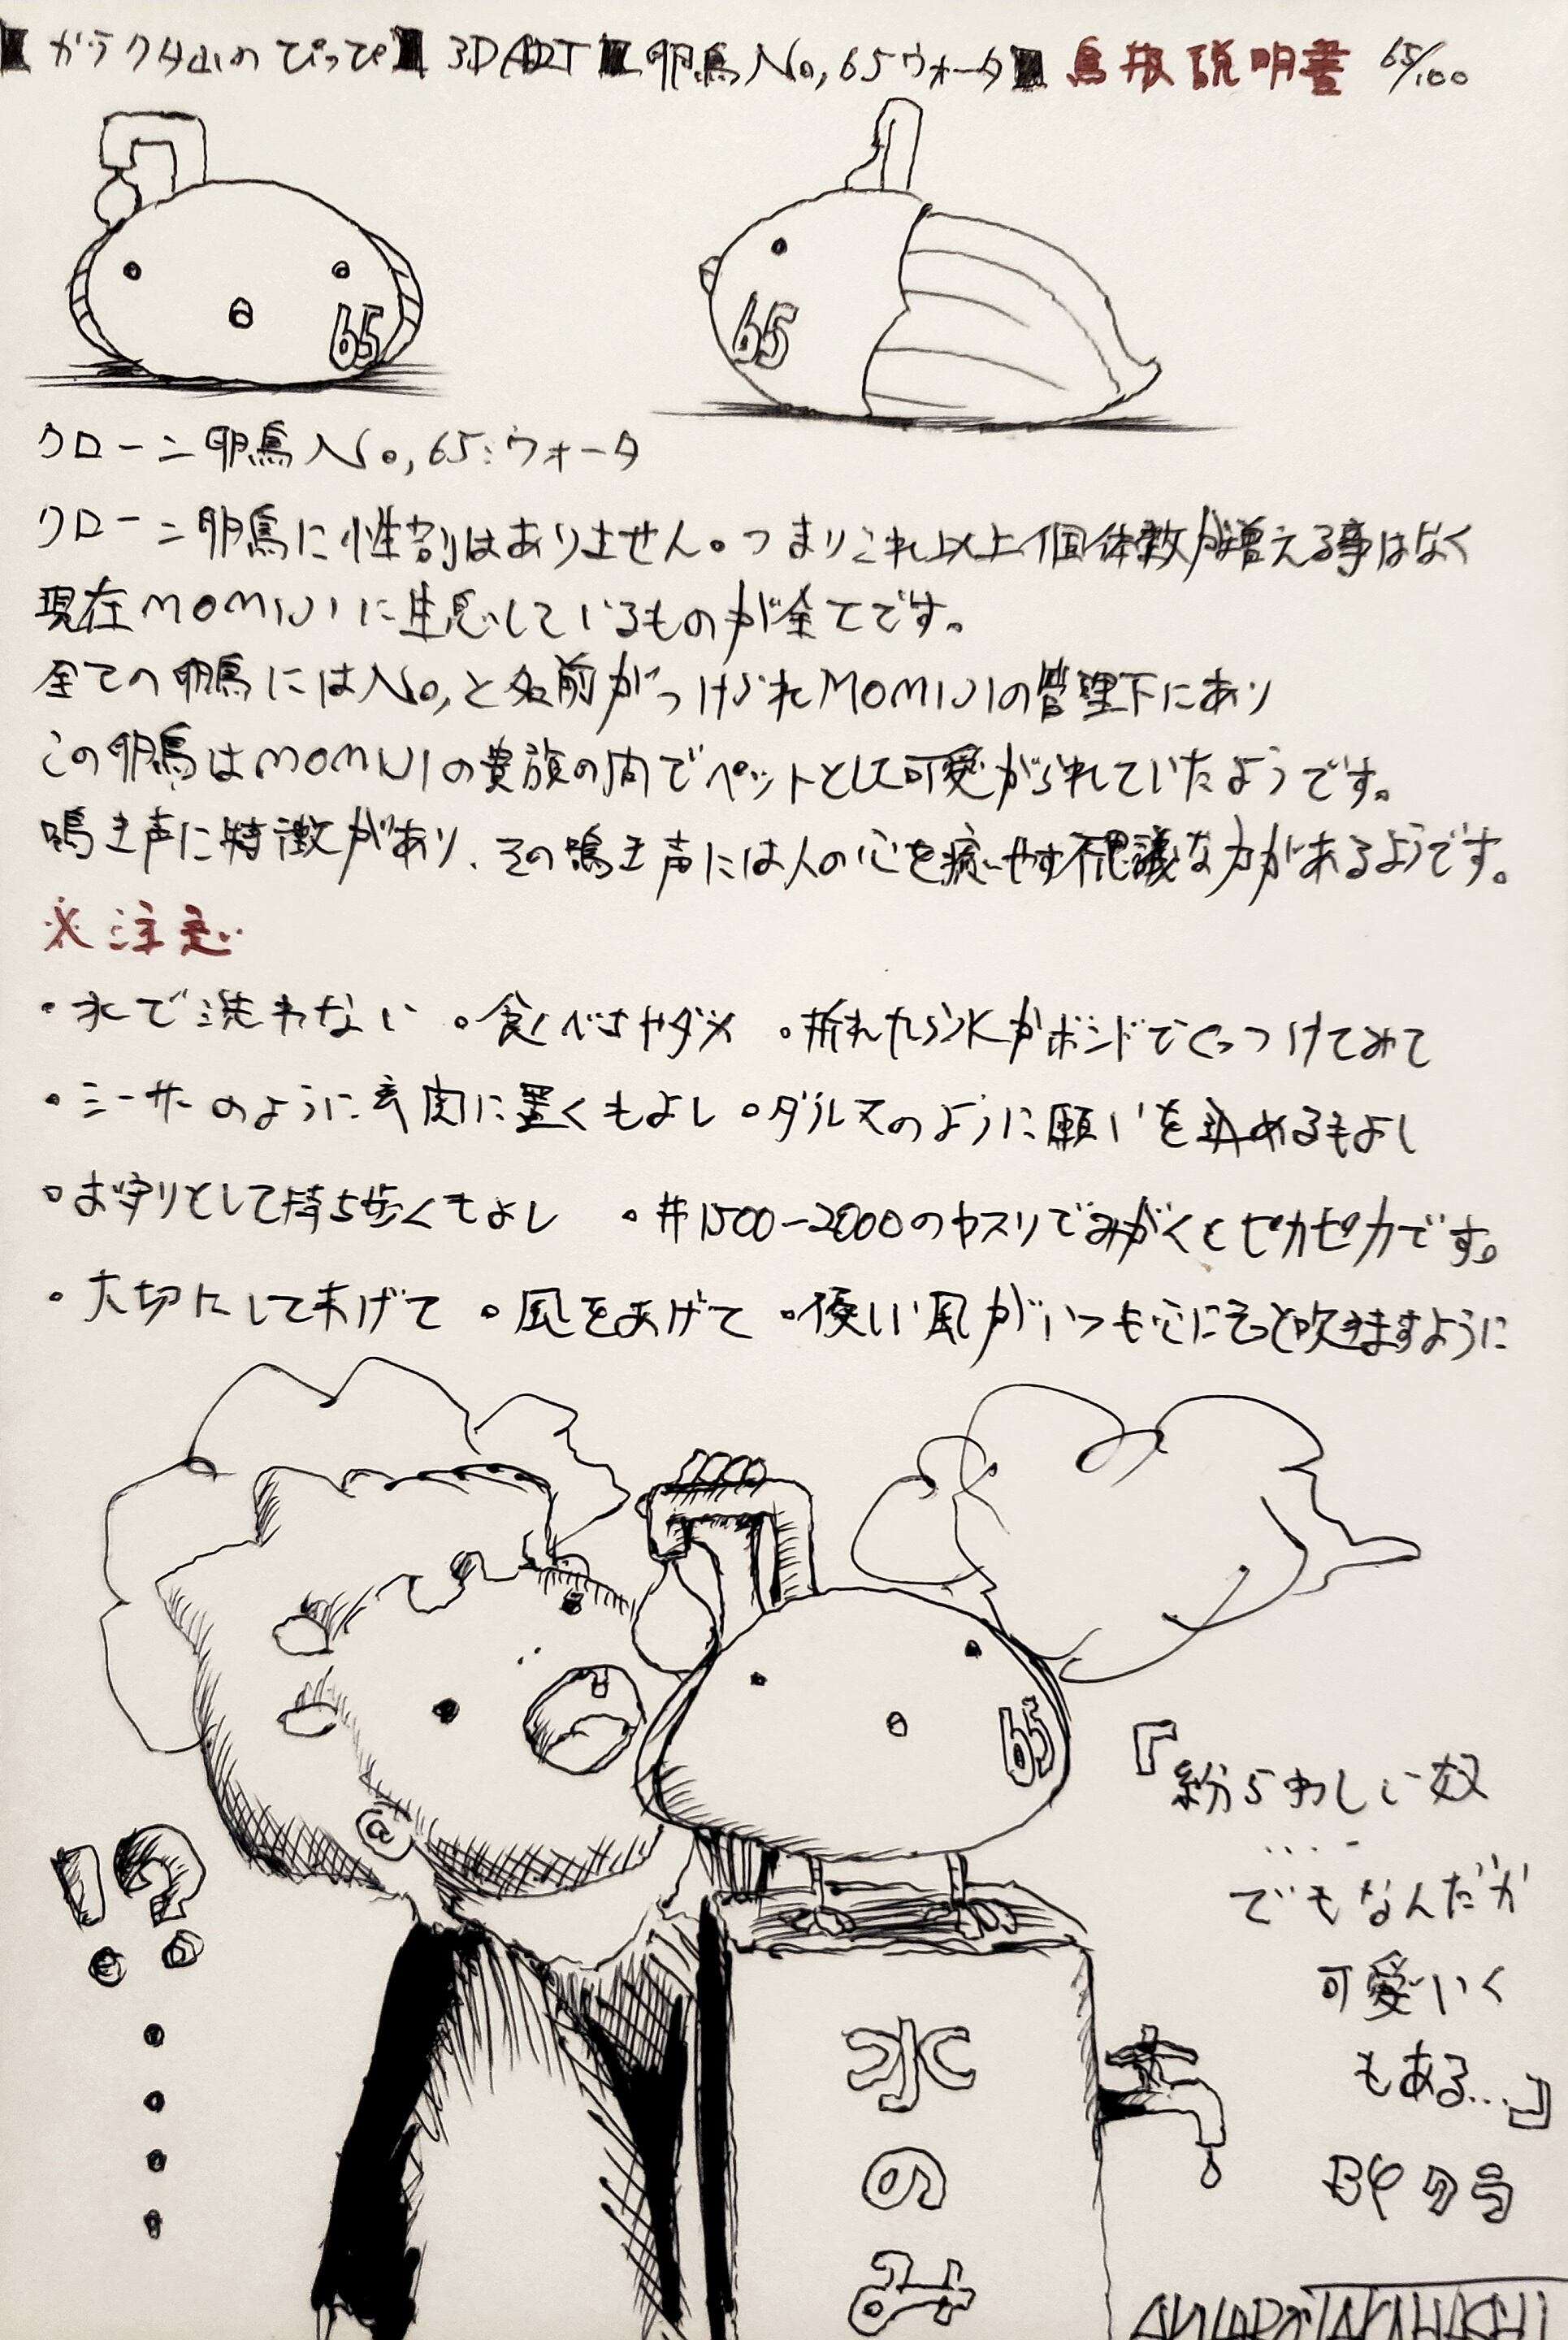 3D ART 卵鳥No,65ウォータ 鳥扱説明書 65/100
65
65
クローン卵鳥No,65:ウォータ
クローン卵鳥に性別はありません。つまりこれ以上個体数が増える事はなく
現在MOMIJIに生息しているものが全てです。
全ての卵鳥にはNo,と名前がつけられMOMIJIの管理下にあり
この卵鳥はMOMIJIの貴族の間でペットとして可愛がられていたようです。
鳴き声に特徴があり、その鳴き声には人の心を癒やす不思議な力があるようです。
※注意
・水で洗わない ・食べちゃダメ ・折れたら木工ボンドでくっつけてみて
・シーサーのように玄関に置くもよし ・ダルマのように願いを込めるもよし
・お守りとして持ち歩くもよし ・#1500-2000のヤスリでみがくとピカピカです。
・大切にしてあげて ・風をあげて ・優しい風がいつも心にそっと吹きますように
65
!?
『紛らわしい奴
....
でもなんだか
可愛いく
もある...』
水
の
み
TAKAHASHI